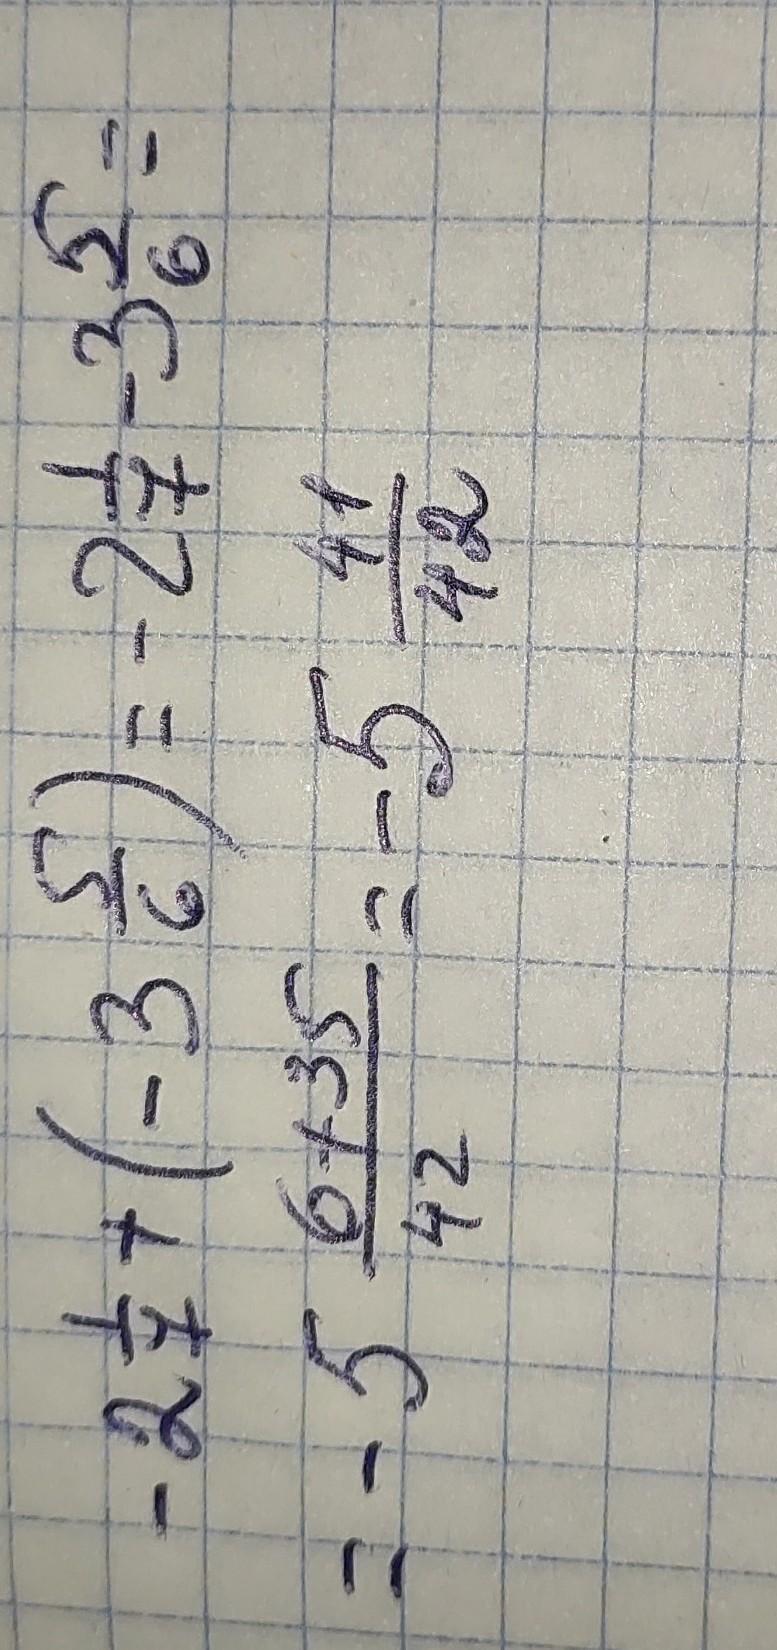 -2 1/7 + (-3 5/6) = -2 1/7 - 3 5/6 =
= -5 (6+35)/42 = -5 41/42